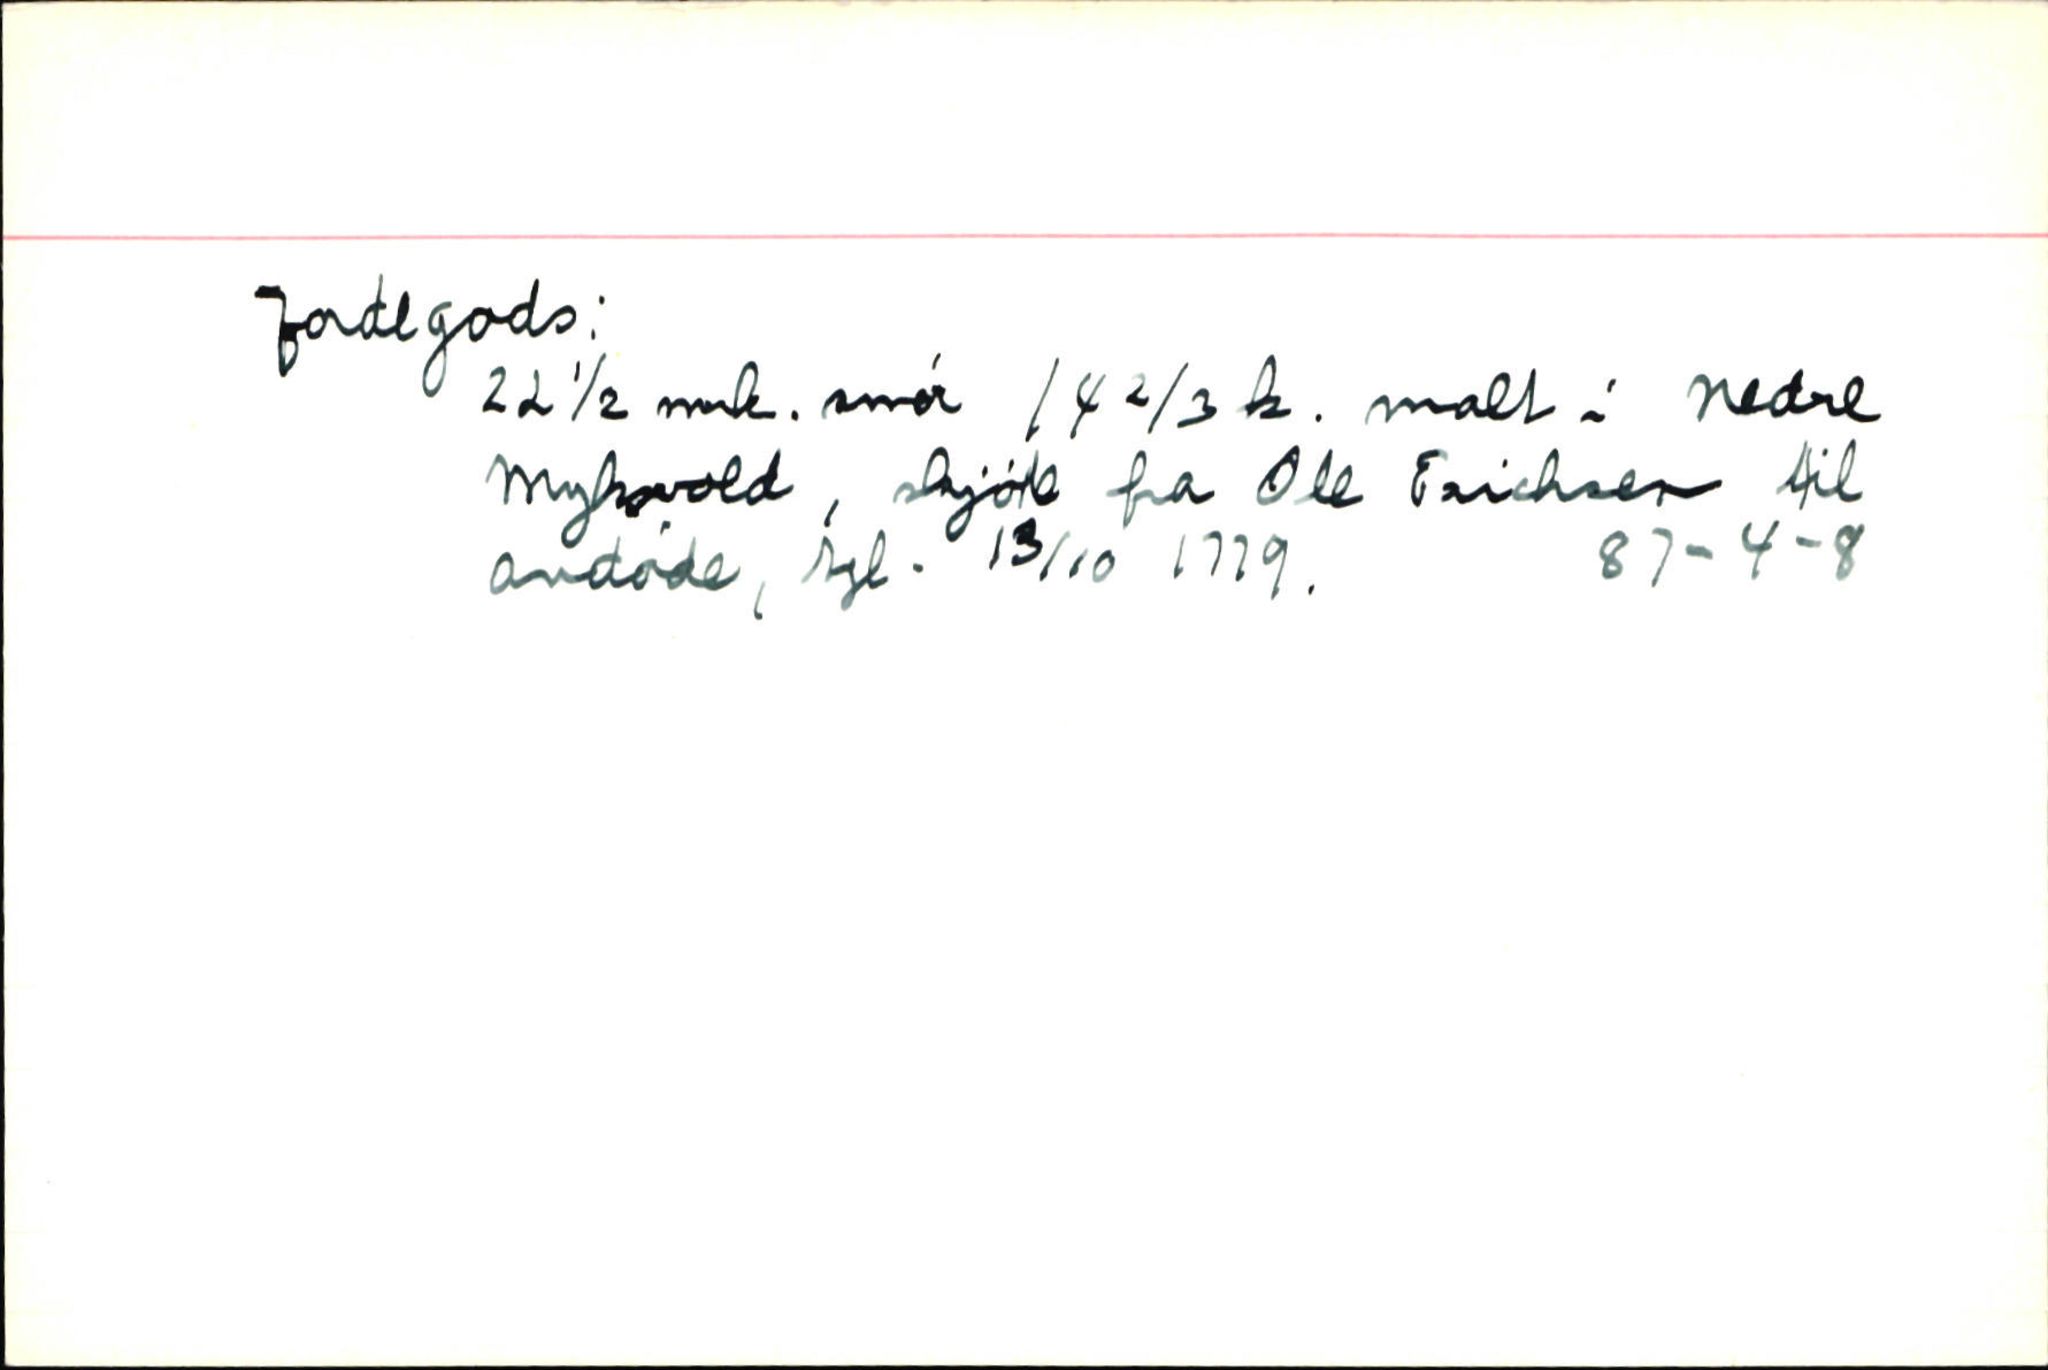 Jordegods:
22 1/2 mrk. smör 14 2/3 k. malt i Nedre
Myksvold, skjöte fra Ole Erichsen til
avdöde, tgl. 13/10 1779. 87-4-8